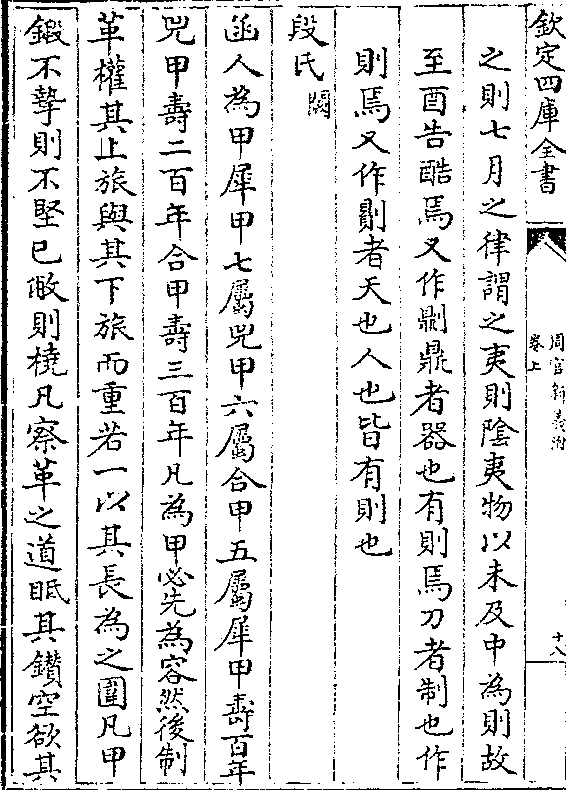 欽定四庫全書
周官新義附
卷上
十八
之則七月之律謂之夷則陰夷物以未及中為則故
至酉告酷焉又作劘鼎者器也有則焉刀者制也作
則焉又作劓者天也人也皆有則也
段氏闕
函人為甲犀甲七屬兕甲六屬合甲五屬犀甲壽百年
兕甲壽二百年合甲壽三百年凡為甲必先為容然後制
革權其上旅與其下旅而重若一以其長為之圍凡甲
鍛不摯則不堅已敝則橈凡察革之道眡其鑽空欲其